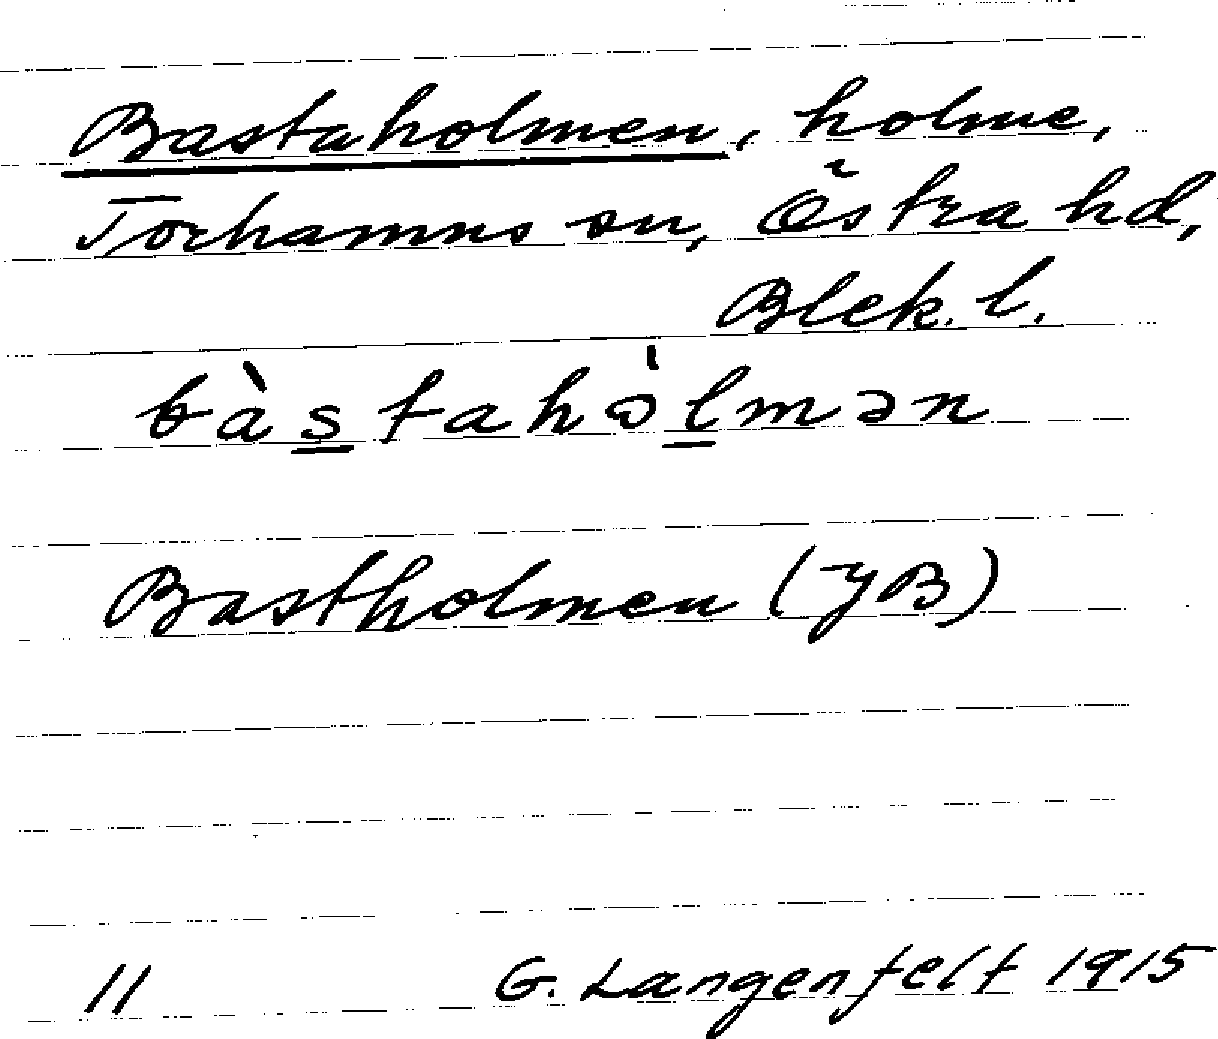 Bastaholmen, holme,
Torhamns sn, Östra hd,
Blek. l.
bàstahòlmən
Bastholmen (JB)
11 G. Langenfelt 1915